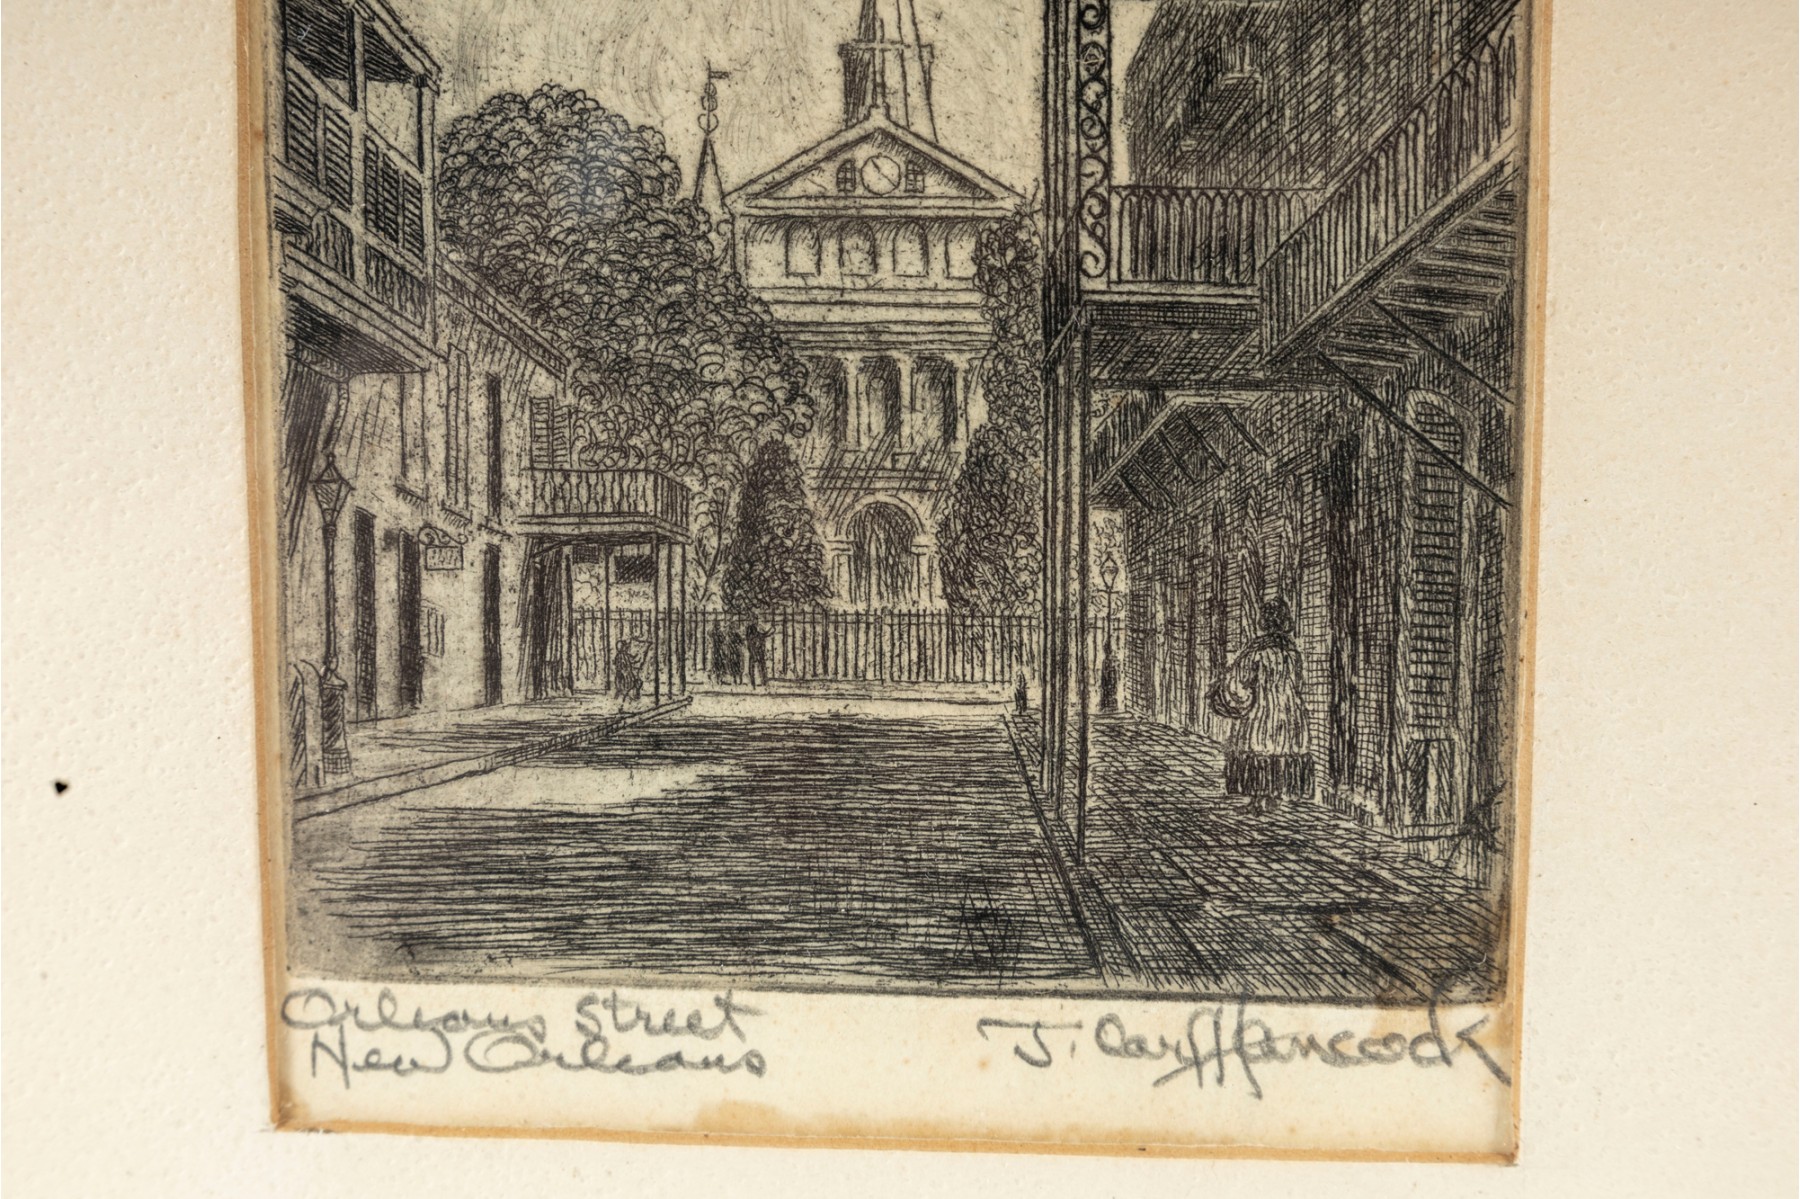 Orleans Street
New Orleans
J. Carl Hancock